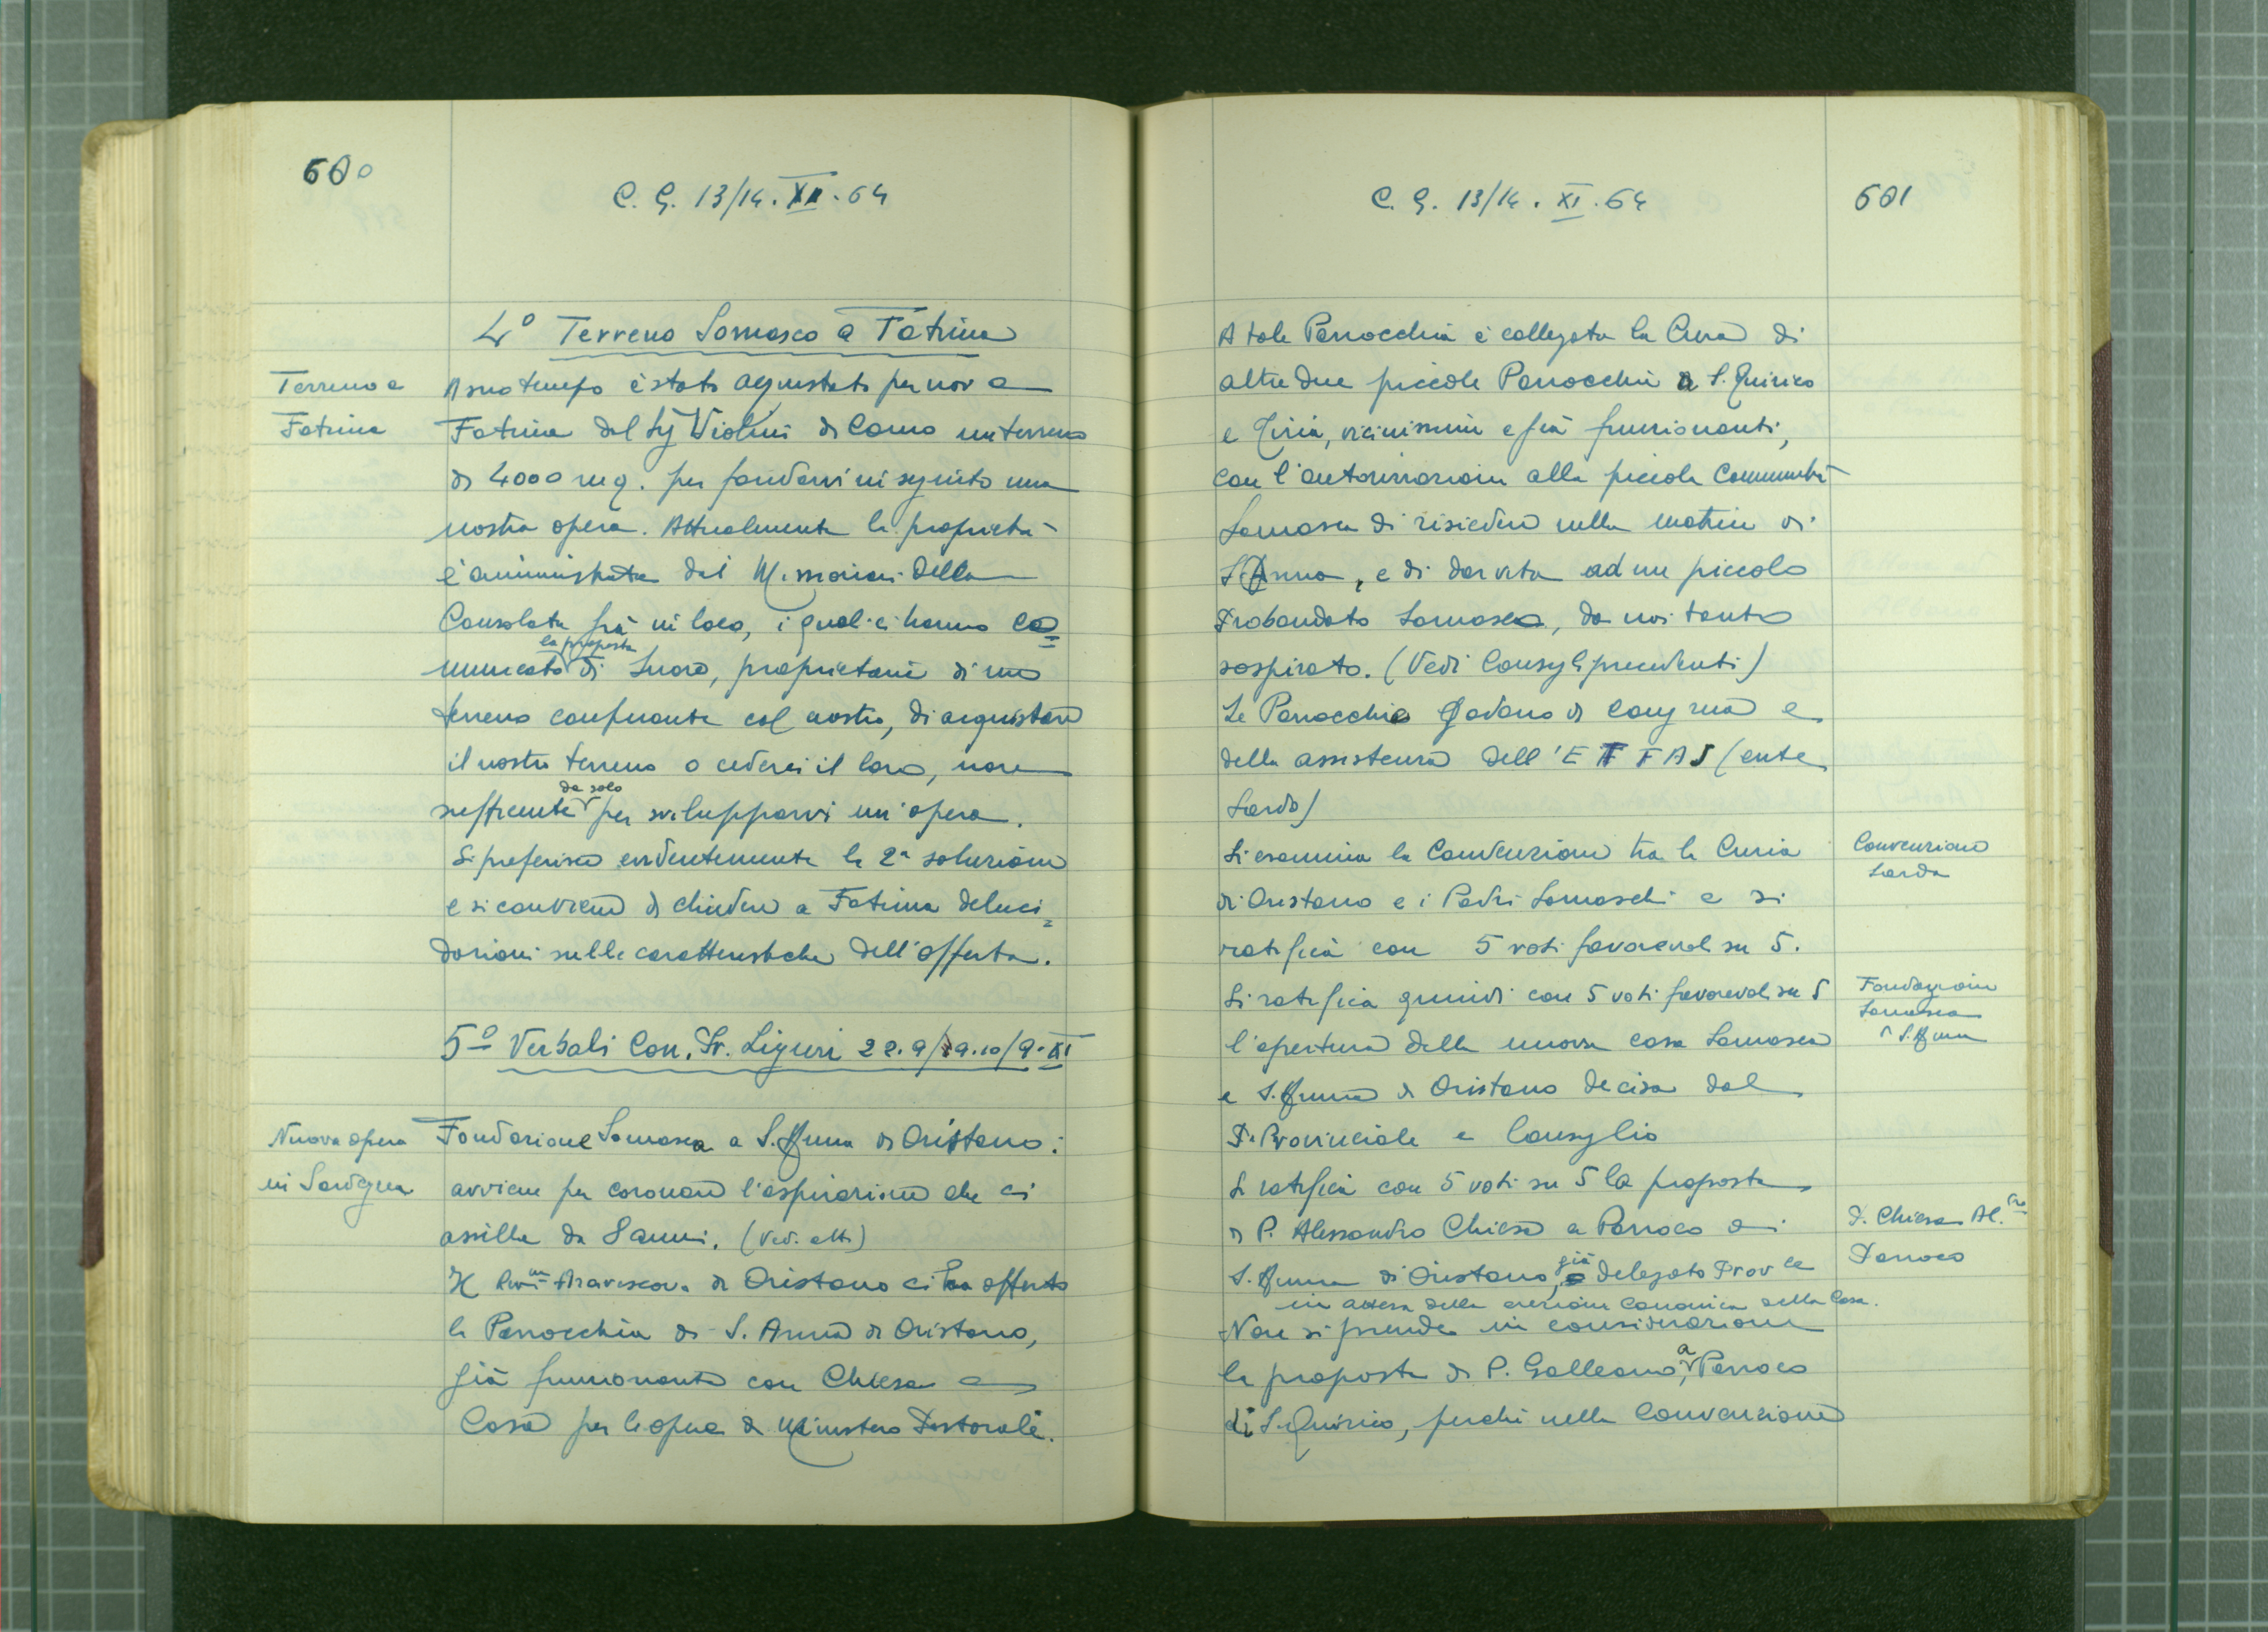 600
C. G. 13/14. XI. 64
4° Terreno Somasco a Fatima
Terreno a
Fatima
A suo tempo è stato acquistato per noi a
Fatima dal Sig Violini di Como un terreno
di 4000 mq. per fondarvi in seguito una
nostra opera. Attualmente la proprietà
è amministrata dai Missionari della
Consolata già in loco, i quali ci hanno co=
municato la proposta di Suore, proprietarie di un
terreno confinante col nostro, di acquistare
il nostro terreno o cederci il loro, non
sufficiente da solo per svilupparvi un'opera.
Si preferisce evidentemente la 2ª soluzione
e si conviene di chiedere a Fatima deluci=
dazioni sulle caratteristiche dell'offerta.
5° Verbali Con. Pr. Liguri 22.9/29.10/9.XI
Nuova opera
in Sardegna
Fondazione Somasca a S. Anna di Oristano:
avviene per coronare l'aspirazione che ci
assilla da 8 anni. (Ved. atti)
Il Rev.m Arcivescovo di Oristano ci ha offerto
la Parrocchia di S. Anna di Oristano,
già funzionante con Chiesa e
Casa per le opere di Ministero Pastorale.
C. G. 13/14. XI. 64
601
A tale Parrocchia è collegata la Cura di
altre due piccole Parrocchie a S. Quirico
e Tiria, vicinissime e già funzionanti,
con l'autorizzazione alla piccola Comunità
Somasca di risiedere nella matrice di
S. Anna, e di dar vita ad un piccolo
Probandato Somasco, da noi tanto
sospirato. (Vedi Consigli precedenti)
Le Parrocchie godono di congrua e
della assistenza dell'ETFAS (ente
Sardo)
Si esamina la Convenzione tra la Curia
di Oristano e i Padri Somaschi e si
ratifica con 5 voti favorevoli su 5.
Convenzione
Sarda
Si ratifica quindi con 5 voti favorevoli su 5
l'apertura della nuova casa Somasca
a S. Anna di Oristano decisa dal
P. Provinciale e Consiglio
Fondazione
Somasca
S. Anna
Si ratifica con 5 voti su 5 la proposta
di P. Alessandro Chiesa a Parroco di
S. Anna di Oristano, già delegato Prov le
in attesa della erezione canonica della Casa.
P. Chiesa Al.ro
Parroco
Non si prende in considerazione
la proposta di P. Galleano, a Parroco
di S. Quirico, perché nella Convenzione